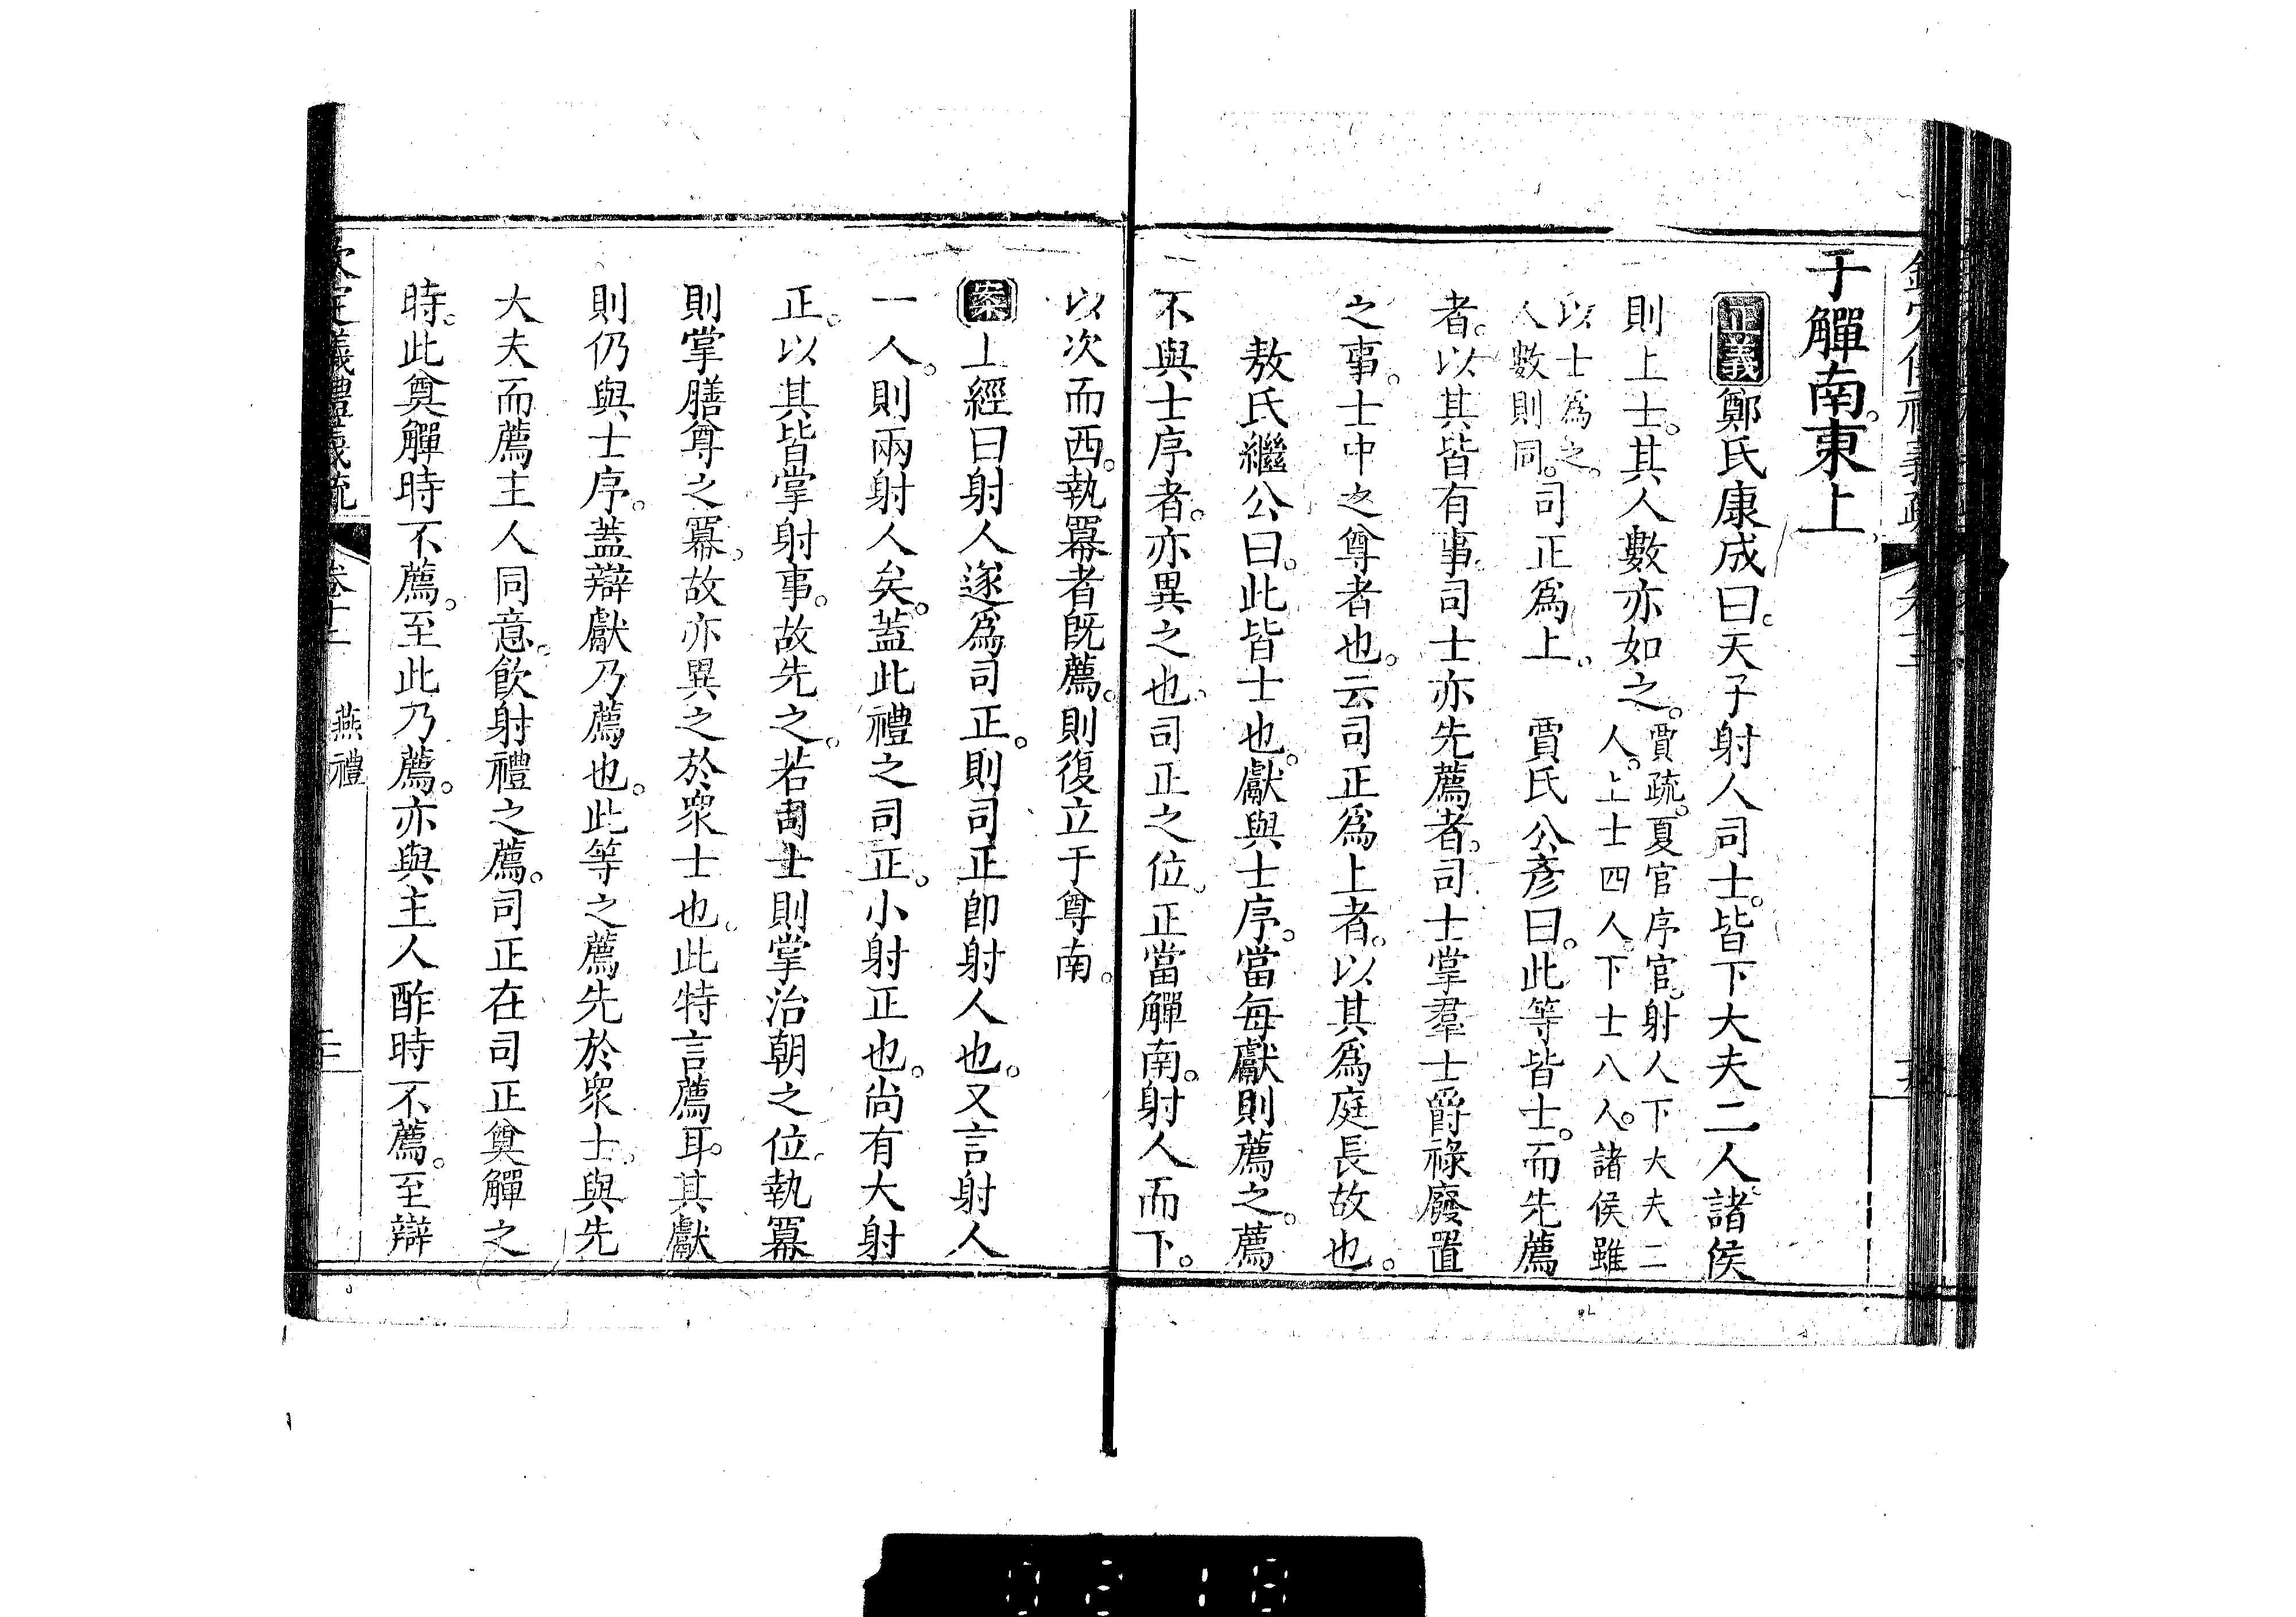 于觶南。東上。
正義鄭氏康成曰。天子射人司士。皆下大夫二人。諸侯
則上士。其人數亦如之。賈疏。夏官序官。射人下大夫二
人。上士四人。下士八人。諸侯雖
以士爲之。
人數則同。司正爲上。 賈氏公彥曰。此等皆士。而先薦
者。以其皆有事。司士亦先薦者。司士掌羣士爵祿廢置
之事。士中之尊者也。云司正爲上者。以其爲庭長故也。
敖氏繼公曰。此皆士也。獻與士序。當每獻則薦之。薦
不與士序者。亦異之也。司正之位。正當觶南。射人而下。
以次而西。執冪者既薦。則復立于尊南。
案上經曰射人遂爲司正。則司正卽射人也。又言射人
一人。則兩射人矣。蓋此禮之司正。小射正也。尚有大射
正。以其皆掌射事。故先之。若司士則掌治朝之位。執冪
則掌膳尊之冪。故亦異之於衆士也。此特言薦耳。其獻
則仍與士序。蓋辯獻乃薦也。此等之薦先於衆士。與先
大夫而薦主人同意。飲射禮之薦。司正在司正奠觶之
時。此奠觶時不薦。至此乃薦。亦與主人酢時不薦。至辯
欽定儀禮義疏 卷十二 燕禮